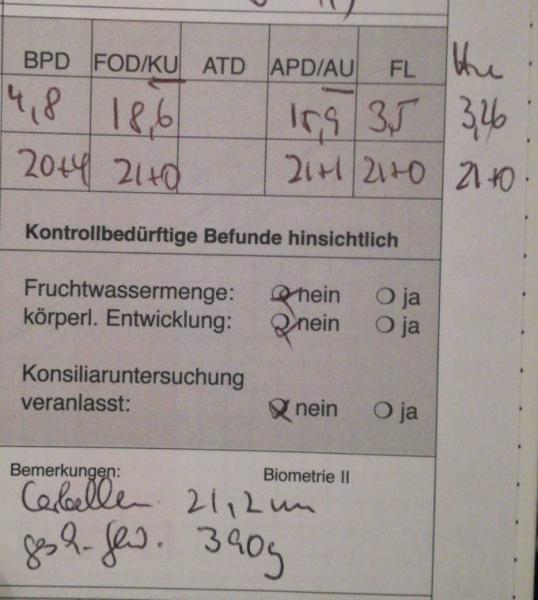 BPD FOD/KU ATD APD/AU FL Hu
4,8 18,6 15,9 3,5 3,46
20+4 21+0 21+1 21+0 21+0
Kontrollbedürftige Befunde hinsichtlich
Fruchtwassermenge: nein ja
körperl. Entwicklung: nein ja
Konsiliaruntersuchung
veranlasst: nein ja
Bemerkungen: Biometrie II
21,2 mm
gesch. Gew. 390g